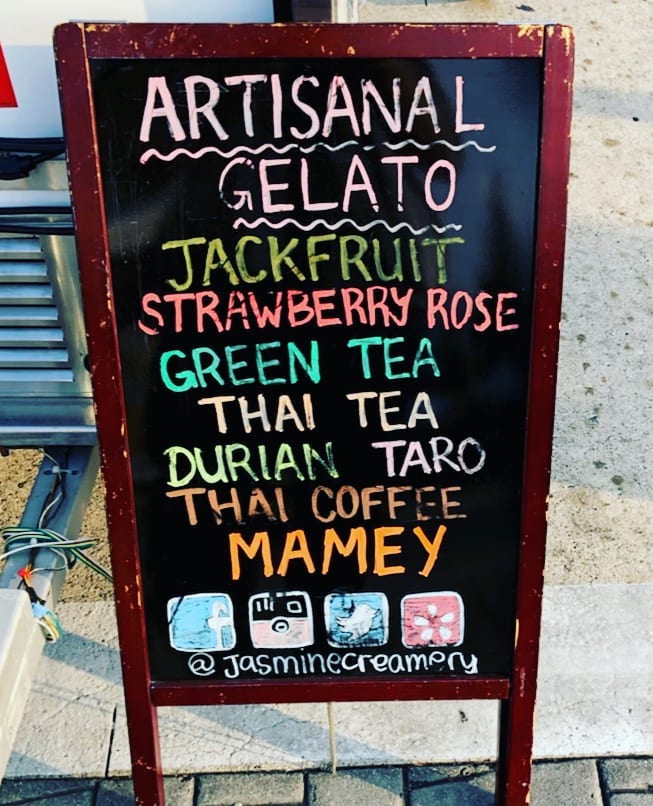 ARTISANAL
GELATO
JACKFRUIT
STRAWBERRY ROSE
GREEN TEA
THAI TEA
DURIAN TARO
THAI COFFEE
MAMEY
@jasminecreamery